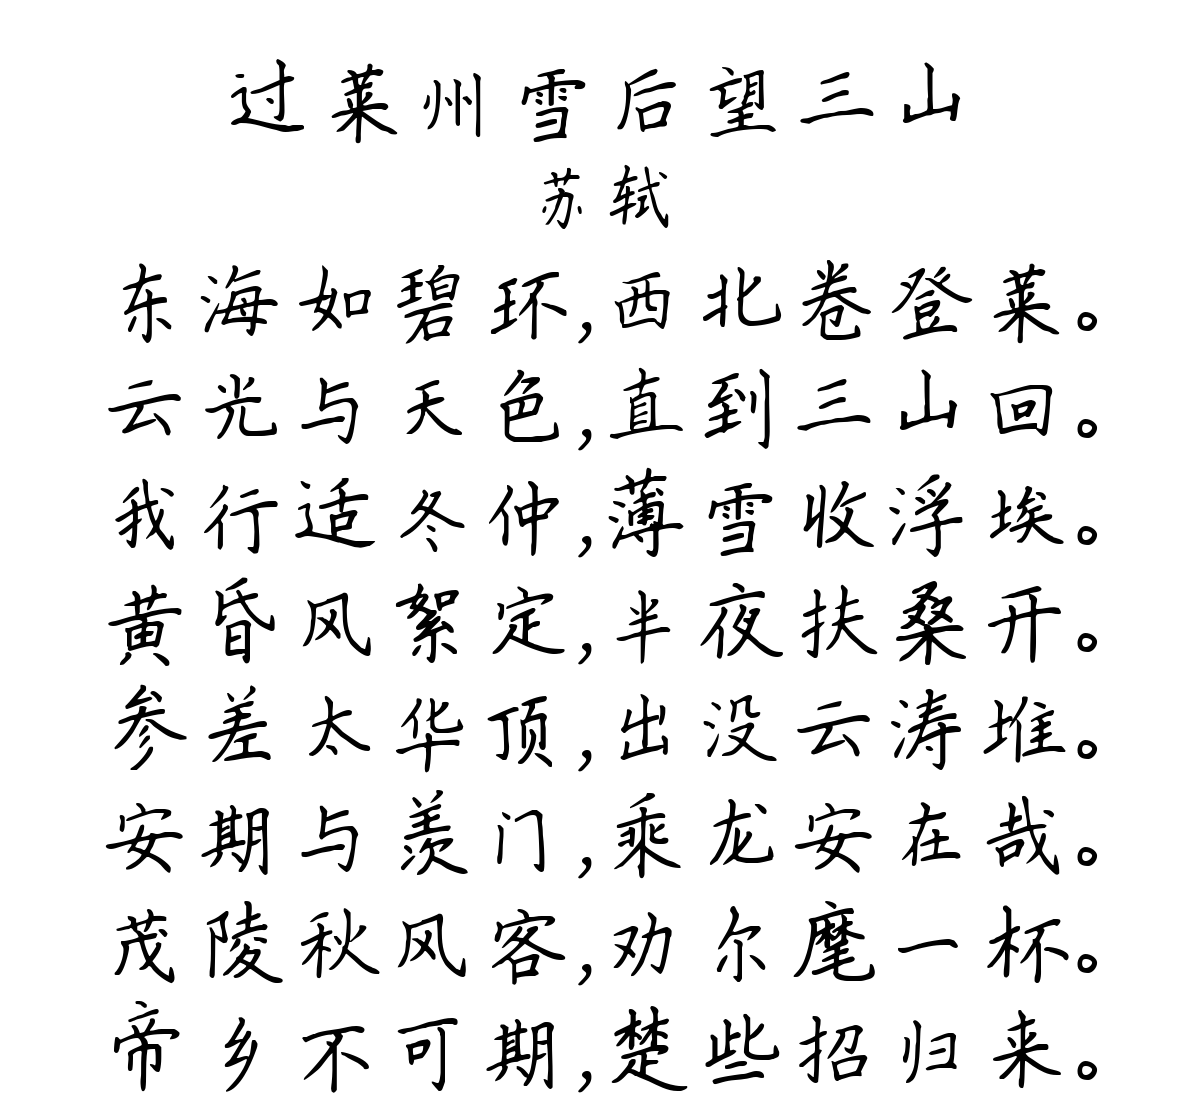 过莱州雪后望三山
苏轼
东海如碧环,西北卷登莱。
云光与天色,直到三山回。
我行适冬仲,薄雪收浮埃。
黄昏风絮定,半夜扶桑开。
参差太华顶,出没云涛堆。
安期与羡门,乘龙安在哉。
茂陵秋风客,劝尔麾一杯。
帝乡不可期,楚些招归来。